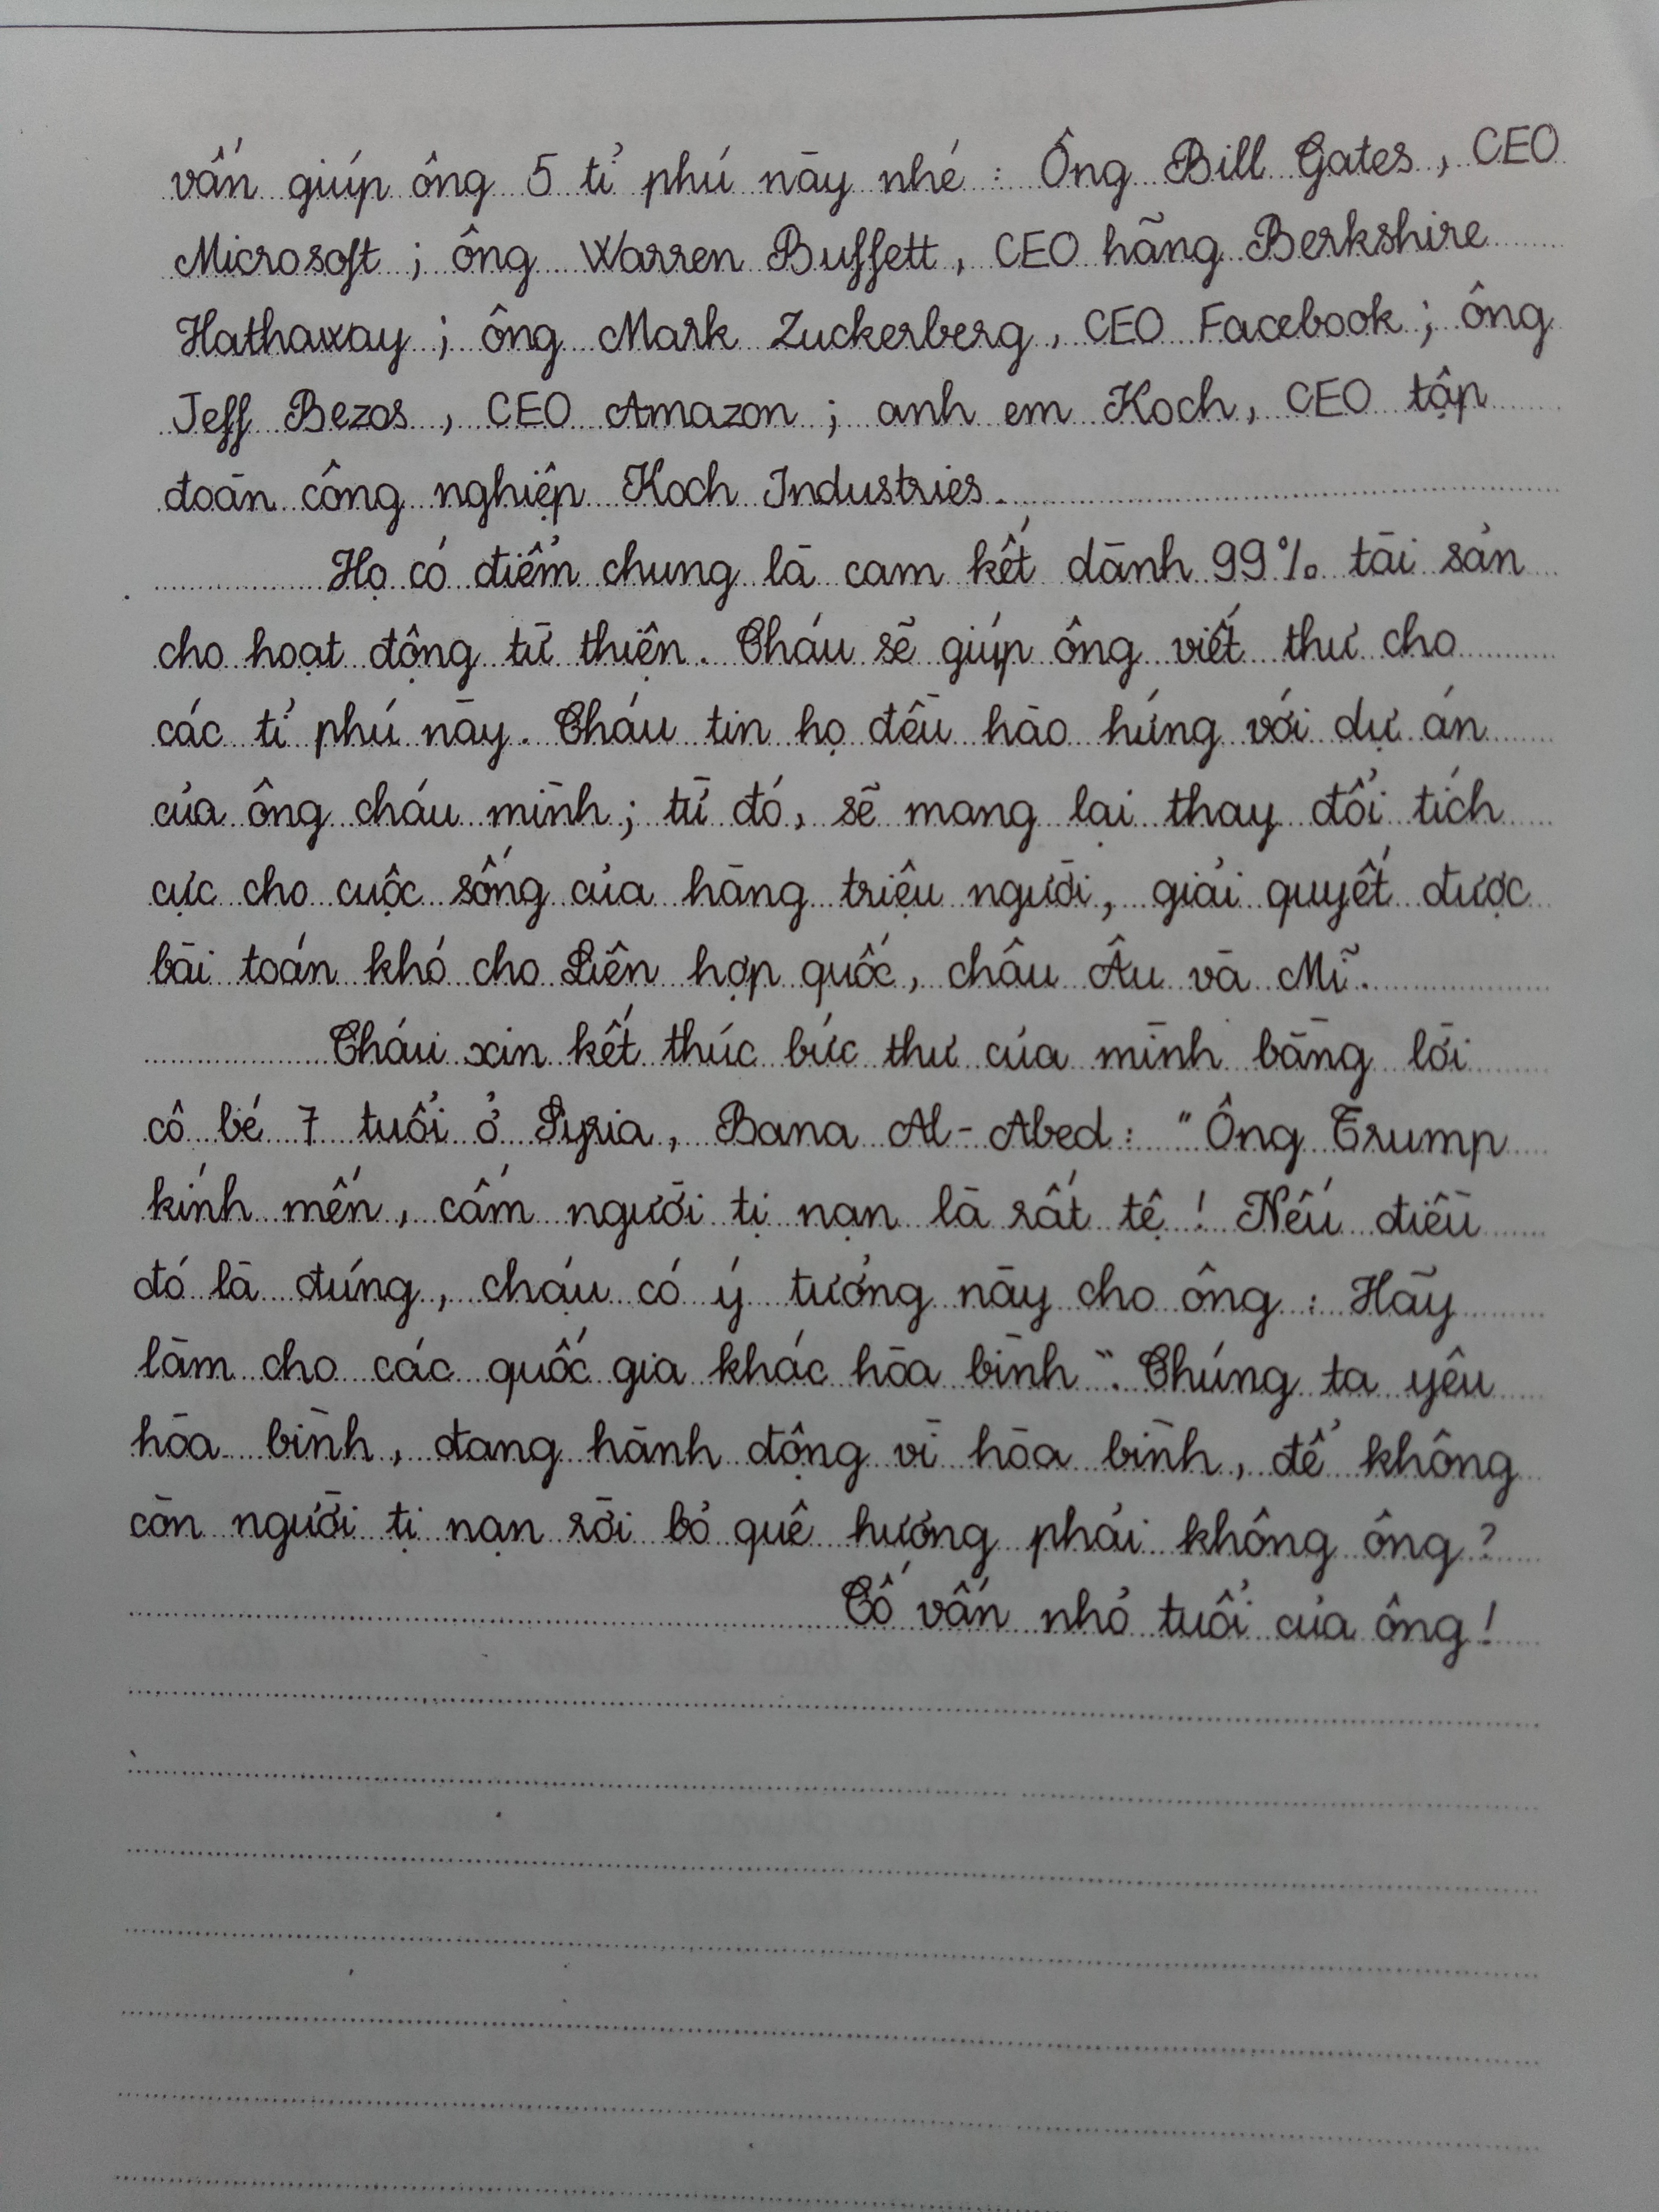 vấn giúp ông 5 tỉ phú này nhé : Ông Bill Gates , CEO
Microsoft ; ông Warren Buffett , CEO hãng Berkshire
Hathaway ; ông Mark Zuckerberg , CEO Facebook ; ông
Jeff Bezos , CEO Amazon ; anh em Koch , CEO tập
đoàn công nghiệp Koch Industries .
Họ có điểm chung là cam kết dành 99% tài sản
cho hoạt động từ thiện . Cháu sẽ giúp ông viết thư cho
các tỉ phú này . Cháu tin họ đều hào hứng với dự án
của ông cháu mình ; từ đó , sẽ mang lại thay đổi tích
cực cho cuộc sống của hàng triệu người , giải quyết được
bài toán khó cho Liên hợp quốc , châu Âu và Mĩ .
Cháu xin kết thúc bức thư của mình bằng lời
cô bé 7 tuổi ở Syria , Bana Al - Abed : " Ông Trump
kính mến , cấm người tị nạn là rất tệ ! Nếu điều
đó là đúng , cháu có ý tưởng này cho ông : Hãy
làm cho các quốc gia khác hòa bình " . Chúng ta yêu
hòa bình , đang hành động vì hòa bình , để không
còn người tị nạn rời bỏ quê hương phải không ông ?
Cố vấn nhỏ tuổi của ông !